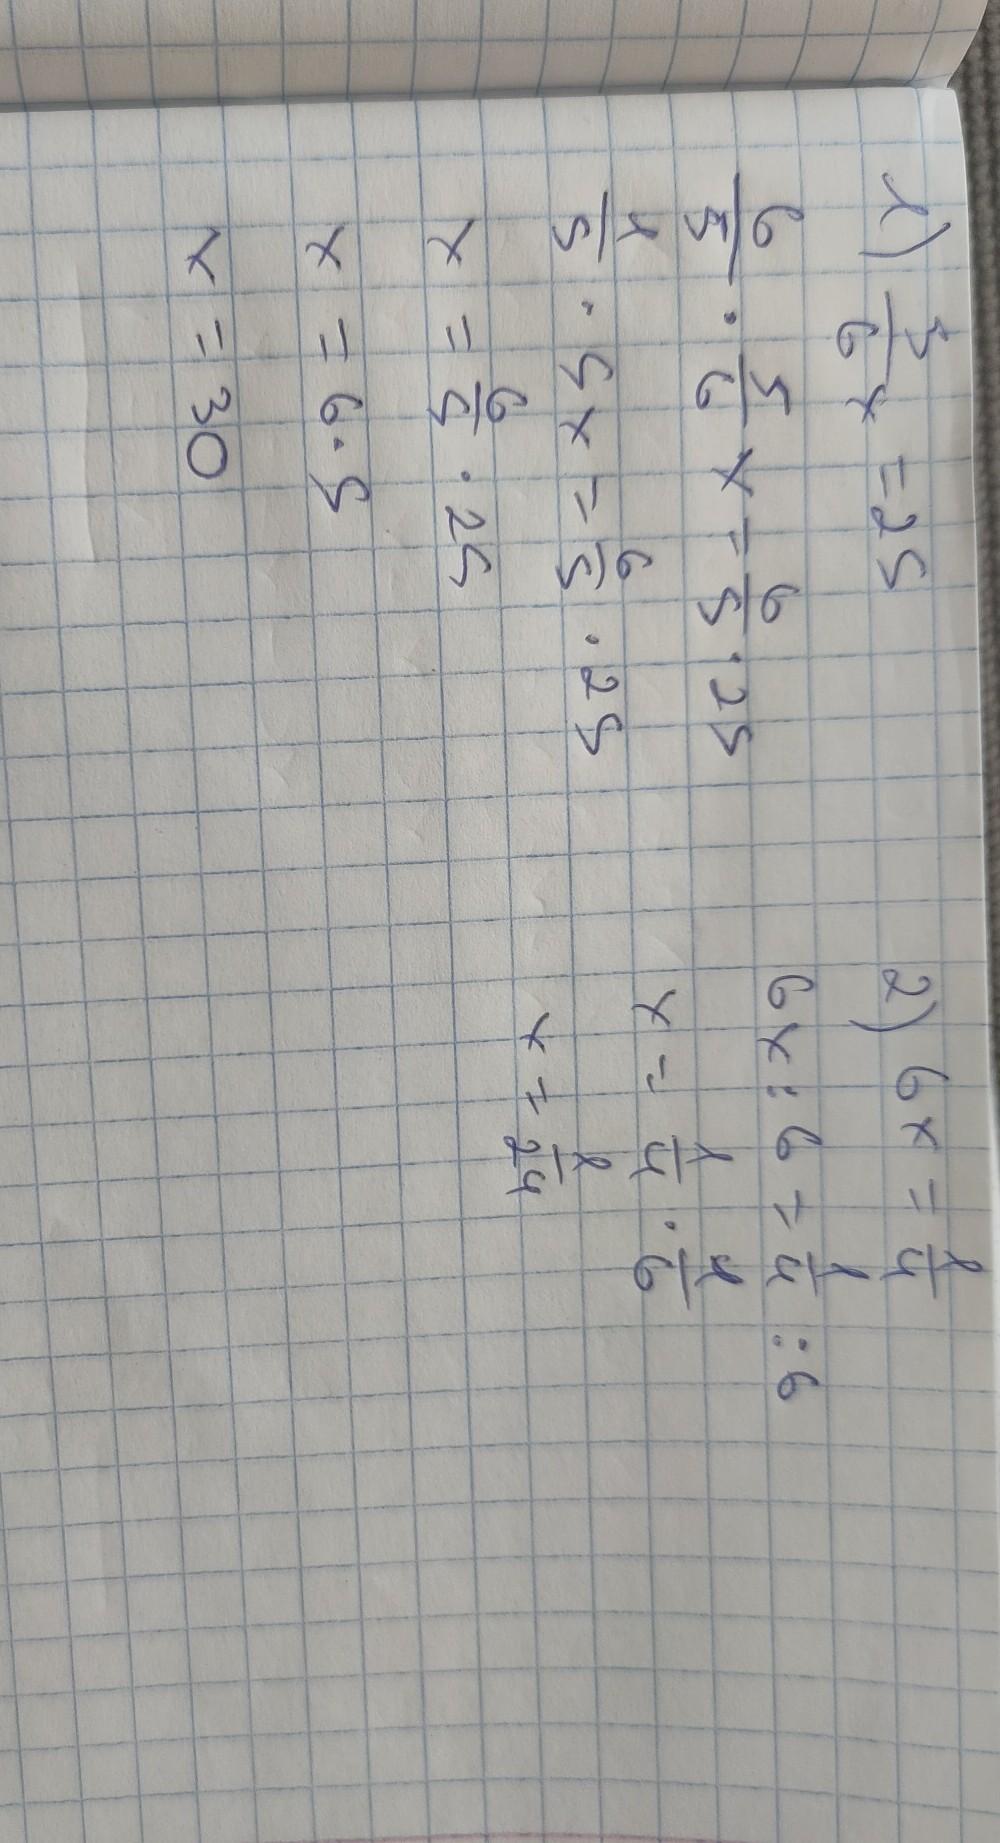 1) 5/6 x = 25
6/5 · 5/6 x = 6/5 · 25
1/5 · 5x = 6/5 · 25
x = 6/5 · 25
x = 6 · 5
x = 30
2) 6x = 1/4
6x : 6 = 1/4 : 6
x = 1/4 · 1/6
x = 1/24